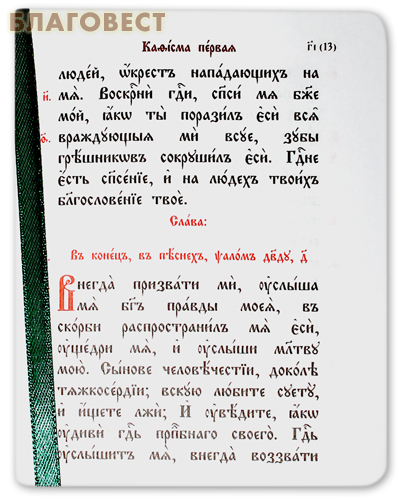 БЛАГОВЕСТ
Каѳі́сма пе́рваѧ
г҃і (13)
люде́й, ѡ҆́крестъ напада́ющихъ на
и҃. мѧ̀. Воскрⷭ҇нѝ гдⷭ҇и, спⷭ҇сѝ мѧ̀ бж҃е
мо́й, ꙗ҆́кѡ ты̀ порази́лъ є҆сѝ всѧ̑
ѳ҃. вражду́ющыѧ мѝ всꙋ́е, зꙋ́бы
грѣ́шникѡвъ сокрꙋши́лъ є҆сѝ. Гдⷭ҇не
є҆́сть спⷭ҇се́нїе, и҆ на лю́дехъ твои́хъ
блг҇ослове́нїе твоѐ.
Сла́ва:
Въ коне́цъ, въ пѣ́снехъ, ѱало́мъ дв҃дꙋ, д҃
Внегда̀ призва́ти мѝ, ᲂу҆слы́ша
мѧ̀ бг҃ъ пра́вды моеѧ̀, въ
ско́рби распространи́лъ мѧ̀ є҆сѝ,
ᲂу҆ще́дри мѧ̀, и҆ ᲂу҆слы́ши мл҃твꙋ
мою̀. Сы́нове человѣ́честїи, доко́лѣ
тѧжкосе́рдїи; вскꙋ́ю лю́бите сꙋетꙋ̀,
и҆ и҆́щете лжѝ; И҆ ᲂу҆вѣ́дите, ꙗ҆́кѡ
ᲂу҆дивѝ гдⷭ҇ь прпⷣбнаго своего̀. Гдⷭ҇ь
ᲂу҆слы́шитъ мѧ̀, внегда̀ воззва́ти